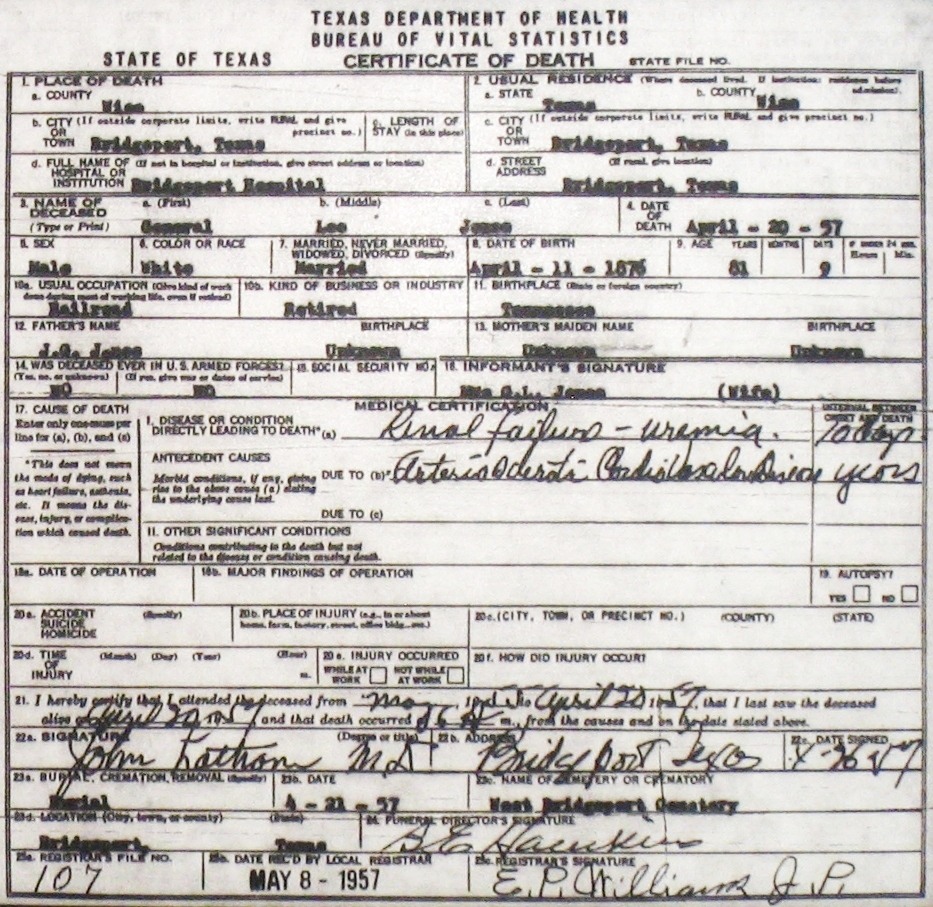 TEXAS DEPARTMENT OF HEALTH
BUREAU OF VITAL STATISTICS
STATE OF TEXAS CERTIFICATE OF DEATH STATE FILE NO.
1. PLACE OF DEATH
a. COUNTY
Wise
2. USUAL RESIDENCE (Where deceased lived. If institution: residence before admission).
a. STATE Texas b. COUNTY Wise
b. CITY (If outside corporate limits, write RURAL and give precinct no.)
OR
TOWN Bridgeport, Texas
c. LENGTH OF
STAY (in this place)
c. CITY (If outside corporate limits, write RURAL and give precinct no.)
OR
TOWN Bridgeport, Texas
d. FULL NAME OF (If not in hospital or institution, give street address or location)
HOSPITAL OR
INSTITUTION Bridgeport Hospital
d. STREET (If rural, give location)
ADDRESS Bridgeport, Texas
3. NAME OF DECEASED
(Type or Print)
a. (First) b. (Middle) c. (Last)
General Lee Jones
4. DATE
OF
DEATH April - 20 - 57
5. SEX
Male
6. COLOR OR RACE
White
7. MARRIED, NEVER MARRIED,
WIDOWED, DIVORCED (Specify)
Married
8. DATE OF BIRTH
April - 11 - 1876
9. AGE YEARS MONTHS DAYS IF UNDER 24 HRS.
Hours Min.
81 9
10a. USUAL OCCUPATION (Give kind of work
done during most of working life, even if retired)
Railroad
10b. KIND OF BUSINESS OR INDUSTRY
Retired
11. BIRTHPLACE (State or foreign country)
Tennessee
12. FATHER'S NAME BIRTHPLACE
J.G. Jones Unknown
13. MOTHER'S MAIDEN NAME BIRTHPLACE
Unknown Unknown
14. WAS DECEASED EVER IN U.S. ARMED FORCES?
(Yes, no, or unknown) (If yes, give war or dates of service)
NO NO
15. SOCIAL SECURITY NO.
16. INFORMANT'S SIGNATURE
Mrs G.L. Jones (Wife)
17. CAUSE OF DEATH
Enter only one cause per
line for (a), (b), and (c)
*This does not mean
the mode of dying, such
as heart failure, asthenia,
etc. It means the dis-
ease, injury, or complica-
tion which caused death.
MEDICAL CERTIFICATION
INTERVAL BETWEEN
ONSET AND DEATH
I. DISEASE OR CONDITION
DIRECTLY LEADING TO DEATH* (a) Renal failure - uremia.
ANTECEDENT CAUSES
Morbid conditions, if any, giving
rise to the above cause (a) stating
the underlying cause last.
DUE TO (b) Arteriosclerotic Cardiovascular Disease years
DUE TO (c)
II. OTHER SIGNIFICANT CONDITIONS
Conditions contributing to the death but not
related to the disease or condition causing death.
18a. DATE OF OPERATION
18b. MAJOR FINDINGS OF OPERATION
19. AUTOPSY?
YES NO
20a. ACCIDENT (Specify)
SUICIDE
HOMICIDE
20b. PLACE OF INJURY (e.g., in or about
home, farm, factory, street, office bldg., etc.)
20c. (CITY, TOWN, OR PRECINCT NO.) (COUNTY) (STATE)
20d. TIME (Month) (Day) (Year) (Hour)
OF
INJURY m.
20e. INJURY OCCURRED
WHILE AT
WORK
NOT WHILE
AT WORK
20f. HOW DID INJURY OCCUR?
21. I hereby certify that I attended the deceased from to April 20 1957, that I last saw the deceased
alive on April 20 and that death occurred at m., from the causes and on the date stated above.
22a. SIGNATURE (Degree or title)
John Lathom M.D
22b. ADDRESS
Bridgeport Texas
22c. DATE SIGNED
4-26-57
23a. BURIAL, CREMATION, REMOVAL (Specify)
Burial
23b. DATE
4 - 21 - 57
23c. NAME OF CEMETERY OR CREMATORY
West Bridgeport Cemetery
23d. LOCATION (City, town, or county) (State)
Bridgeport, Texas
24. FUNERAL DIRECTOR'S SIGNATURE
25a. REGISTRAR'S FILE NO.
107
25b. DATE REC'D BY LOCAL REGISTRAR
MAY 8 - 1957
25c. REGISTRAR'S SIGNATURE
E.P. Williams J.P.